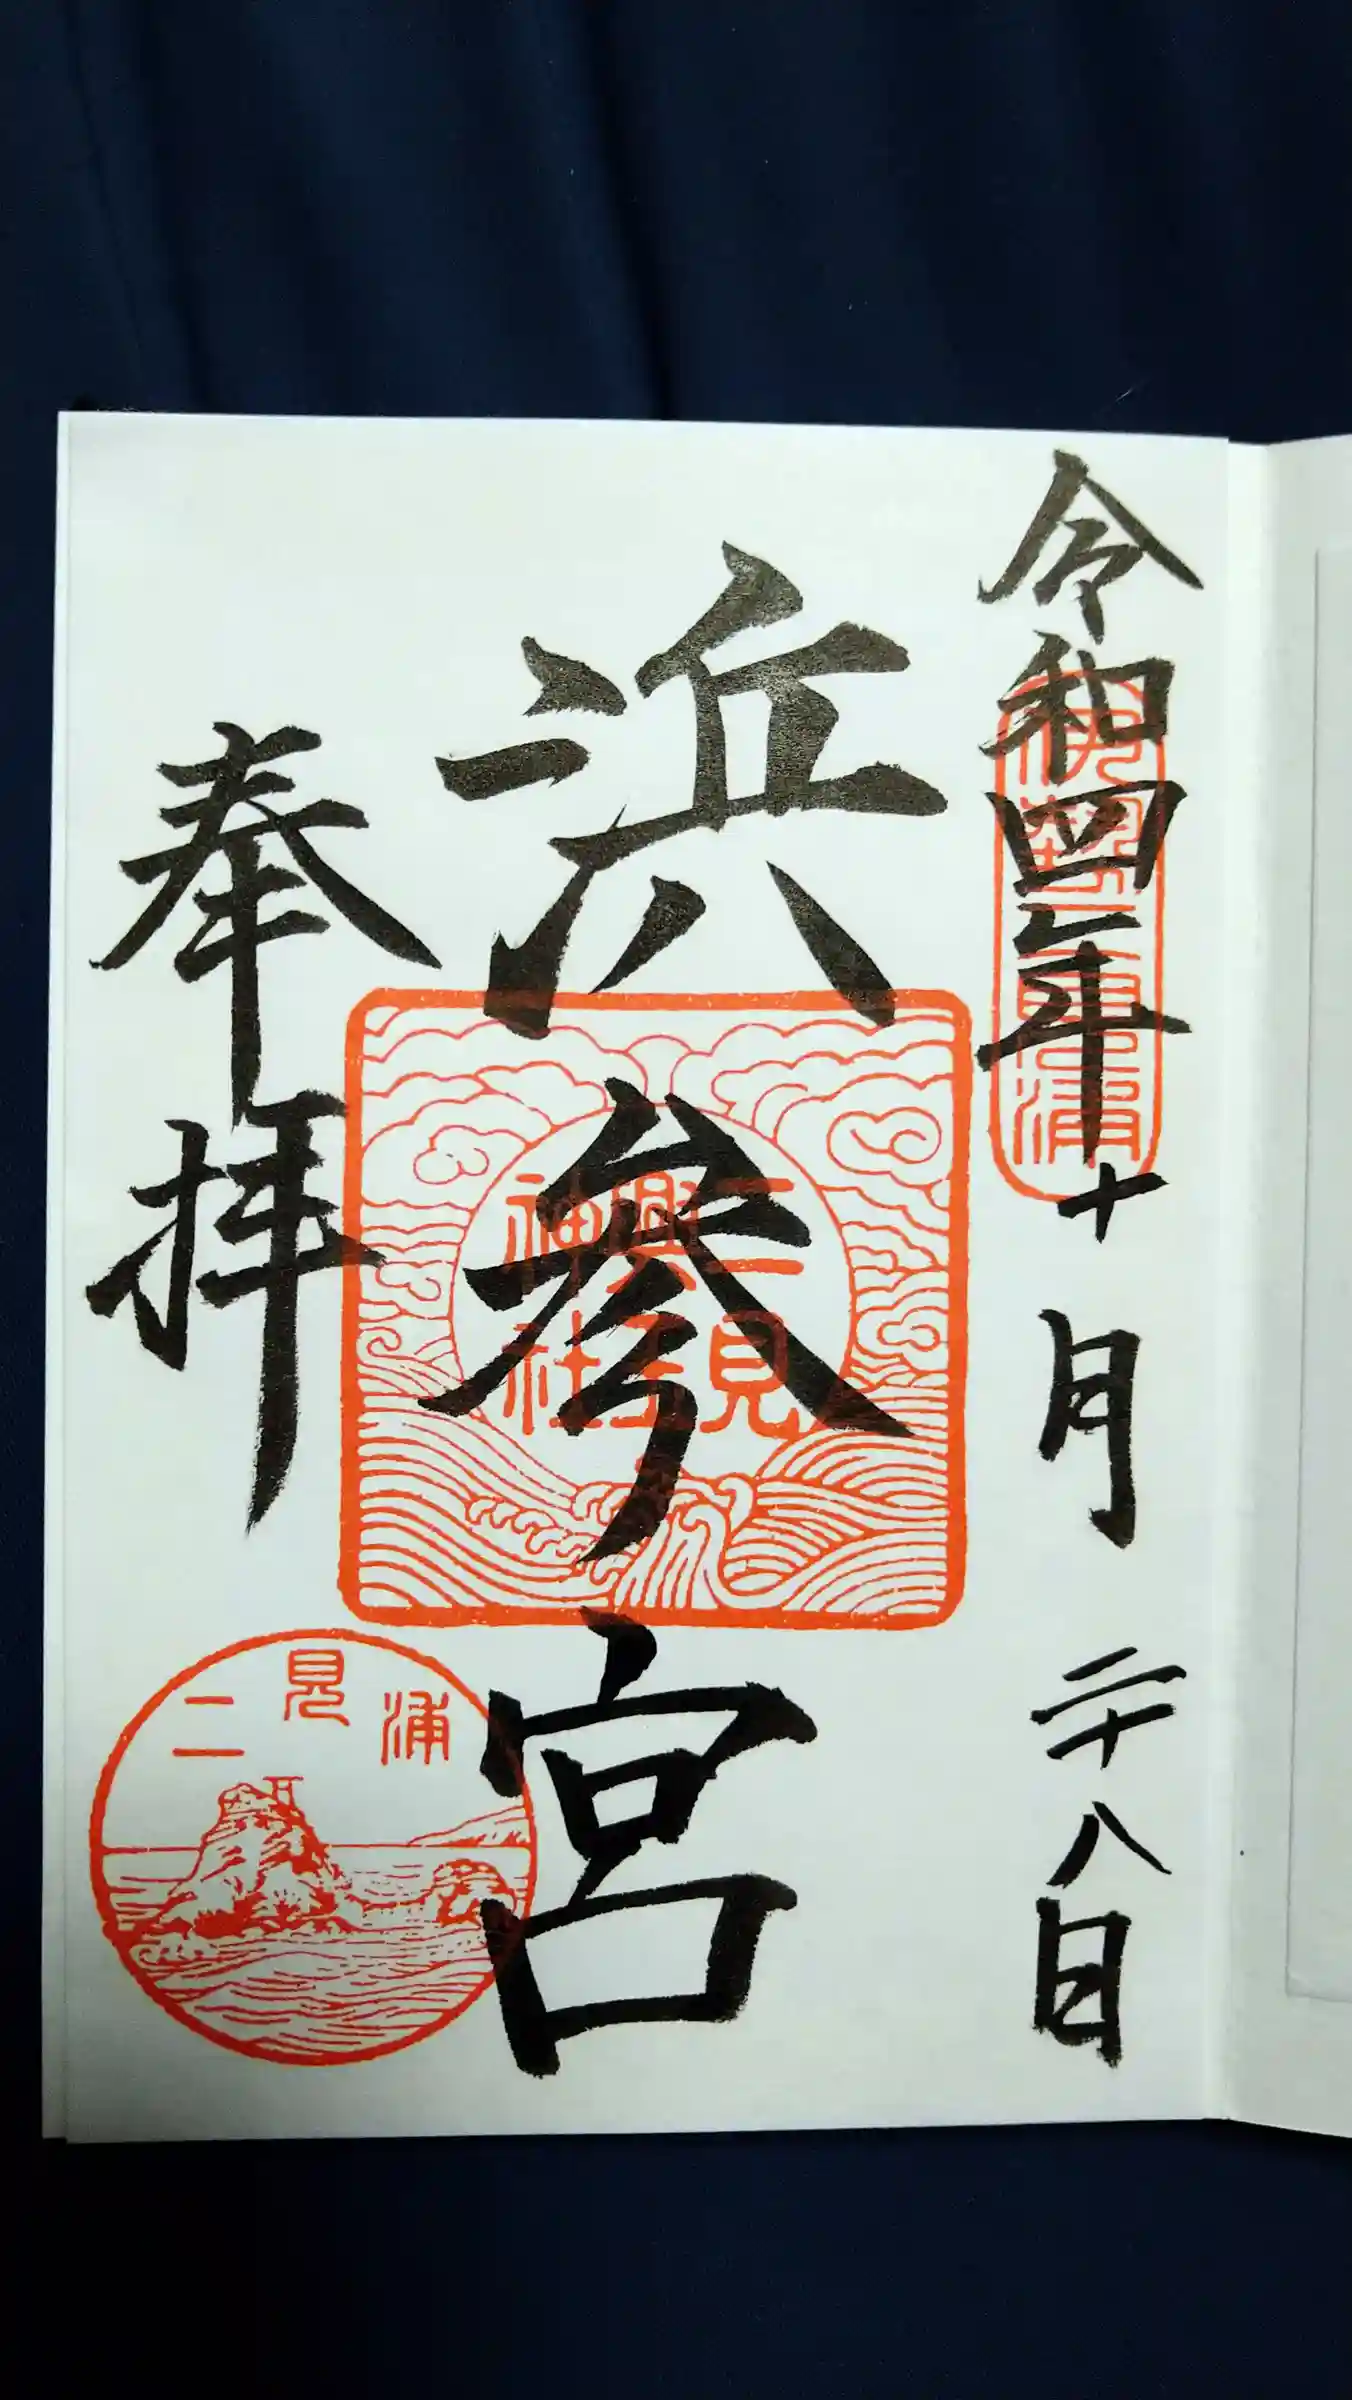 令和四年十月二十八日
伊勢二見浦
浜参宮
二見
興玉
神社
奉拝
二見浦